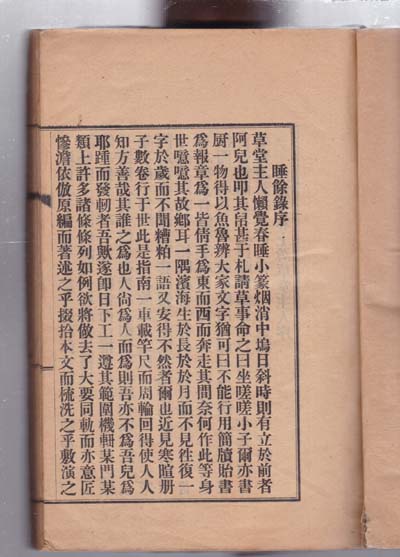 睡餘錄序
草堂主人懶覺春睡小篆烟消中塢日斜時則有立於前者
阿兒也叩其帛甚于札請草事命之曰坐嗟嗟小子爾亦書
厨一物得以魚魯辨大家文字猶可曰不能行用簡牘貽書
爲報章爲一皆倩手爲東而西而奔走其間奈何作此等身
世噫噫其故鄉耳一隅濱海生於長於於月而不見徃復一
字於歲而不聞糟粕一語又安得不然者爾也近見寒暄册
子數卷行于世此是指南一車載竿尺而周輪回得使人人
知方善哉其誰之爲也人尙爲人而爲則吾亦不爲吾兒爲
耶踵而發軔者吾歟遂卽日下工一遵其範圍機軸某門某
類上許多諸條條列如例欲將做去了大要同軌而亦意匠
慘澹依倣原編而著述之乎掇拾本文而梳洗之乎敷演之